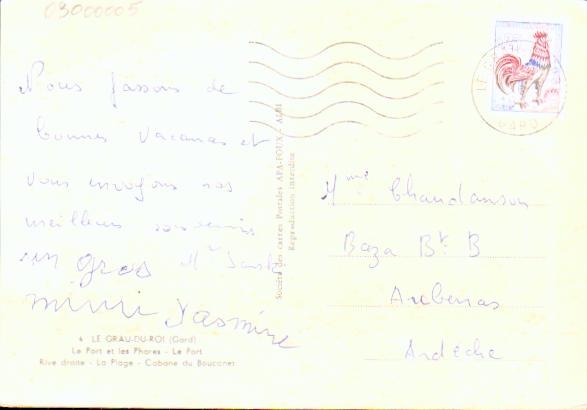 03000005
Nous passons de
bonnes vacances et
vous envoyons nos
meilleurs souvenirs
un gros
mimi Yasmine
6 LE GRAU-DU-ROI (Gard)
Le Port et les Phares - Le Port
Rive droite - La Plage - Cabane du Boucanet
Société des cartes Postales APA-POUX - ALBI
Reproduction interdite
Mme Chaudanson
Baza Bt B
Aubenas
Ardèche